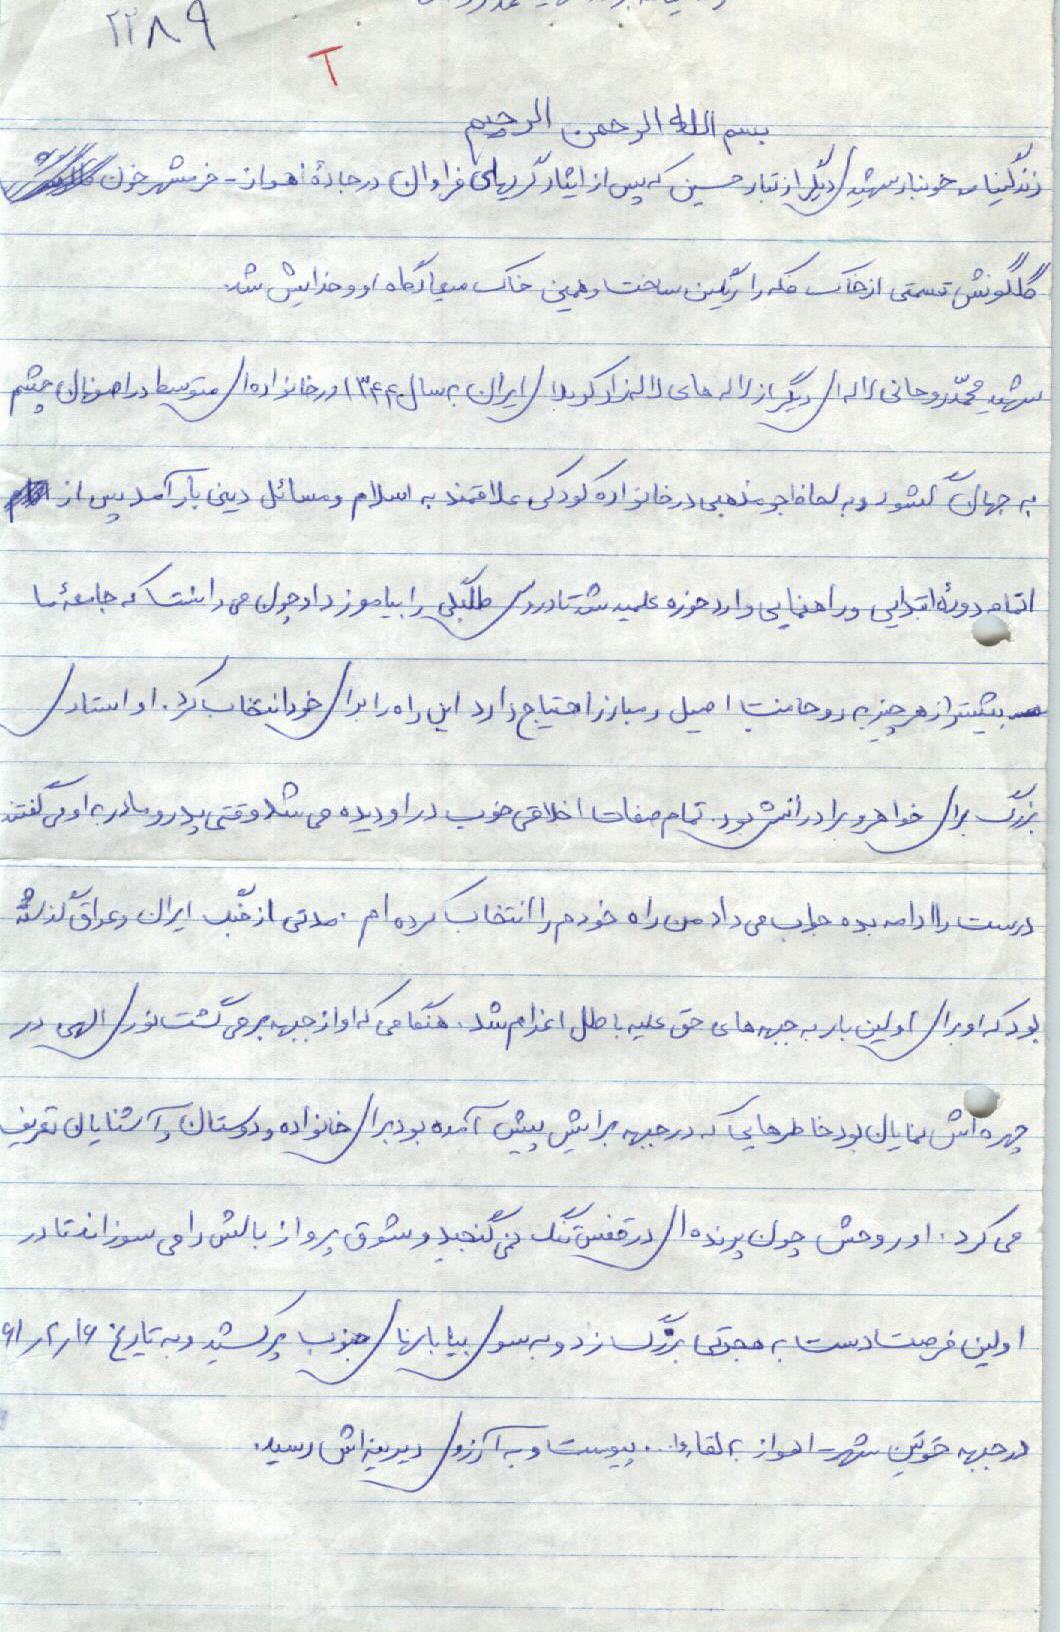 ۲۲۸۹
T
بسم الله الرحمن الرحیم
زندگینامه خونبار شهیدی دیگر از تبار حسین که پس از ایثارگریهای فراوان در جادهٔ اهواز - خرمشهر خون
گلگونش قسمتی از خاک فکه را رنگین ساخت و همین خاک میعادگاه او و خدایش شد.
شهید محمّد روحانی لاله ای دیگر از لاله های لاله زار کربلای ایران به سال ۱۳۴۴ در خانواده ای متوسط در اصفهان چشم
به جهان گشود و به لحاظ جو مذهبی در خانواده کودکی علاقمند به اسلام و مسائل دینی بار آمد پس از
اتمام دورهٔ ابتدایی و راهنمایی وارد حوزه علمیه شد تا درس طلبگی را بیاموزد او چون می دانست که جامعهٔ ما
بیشتر از هر چیز به روحانیت اصیل و مبارز احتیاج دارد این راه را برای خود انتخاب کرد. او استادی
بزرگ برای خواهر و برادرانش بود. تمام صفات اخلاقی خوب در او دیده می شد وقتی پدر و مادر به او می گفتند
درست را ادامه بده جواب می داد من راه خودم را انتخاب کرده ام. مدتی از جنگ ایران و عراق گذشته
بود که او برای اولین بار به جبهه های حق علیه باطل اعزام شد. هنگامی که او از جبهه بر می گشت نوری الهی در
چهره اش نمایان بود خاطرهایی که در جبهه برایش پیش آمده بود برای خانواده و دوستان و آشنایان تعریف
می کرد. او روحش چون پرنده ای در قفس تنگ نمی گنجید و شوق پرواز بالش را می سوزاند تا در
اولین فرصت دست به هجرتی بزرگ زد و به سوی بیابانهای جنوب پر کشید و به تاریخ ۶۱/۲/۱۶
در جبهه خونین شهر - اهواز به لقاء ا... پیوست و به آرزوی دیرینه اش رسید.